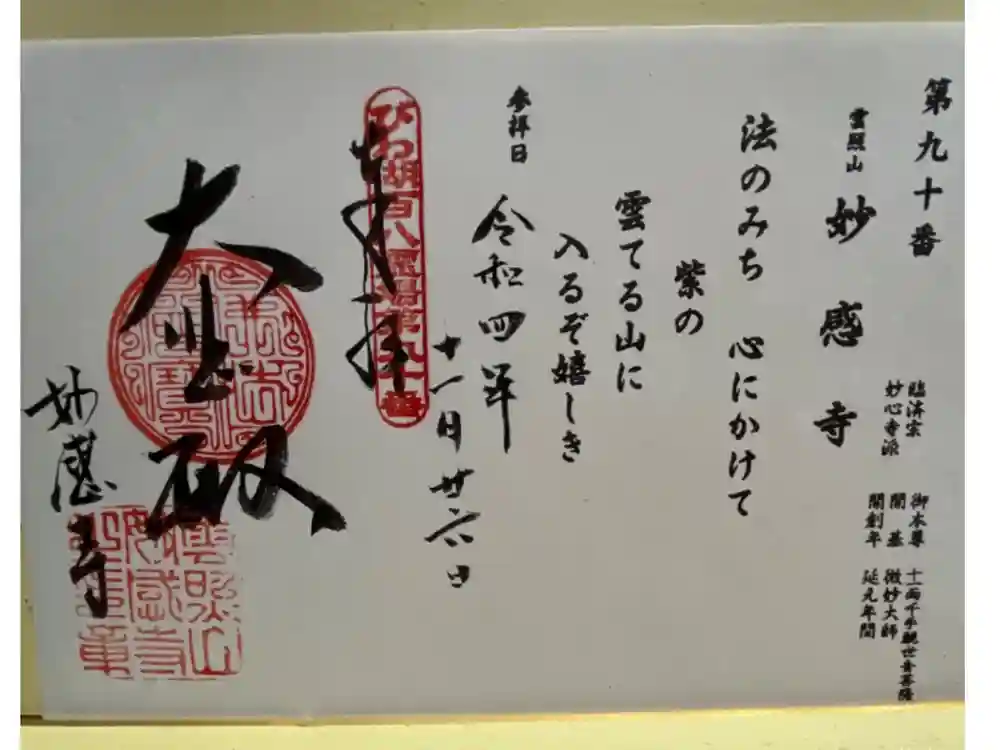 第九十番
雲照山 妙感寺
臨済宗
妙心寺派
御本尊 十一面千手観世音菩薩
開基 微妙大師
開創年 延元年間
法のみち 心にかけて
紫の
雲てる山に
入るぞ嬉しき
参拝日 令和四年
十一月廿六日
奉拝
びわ湖百八霊場第九十番
大悲殿
妙感寺